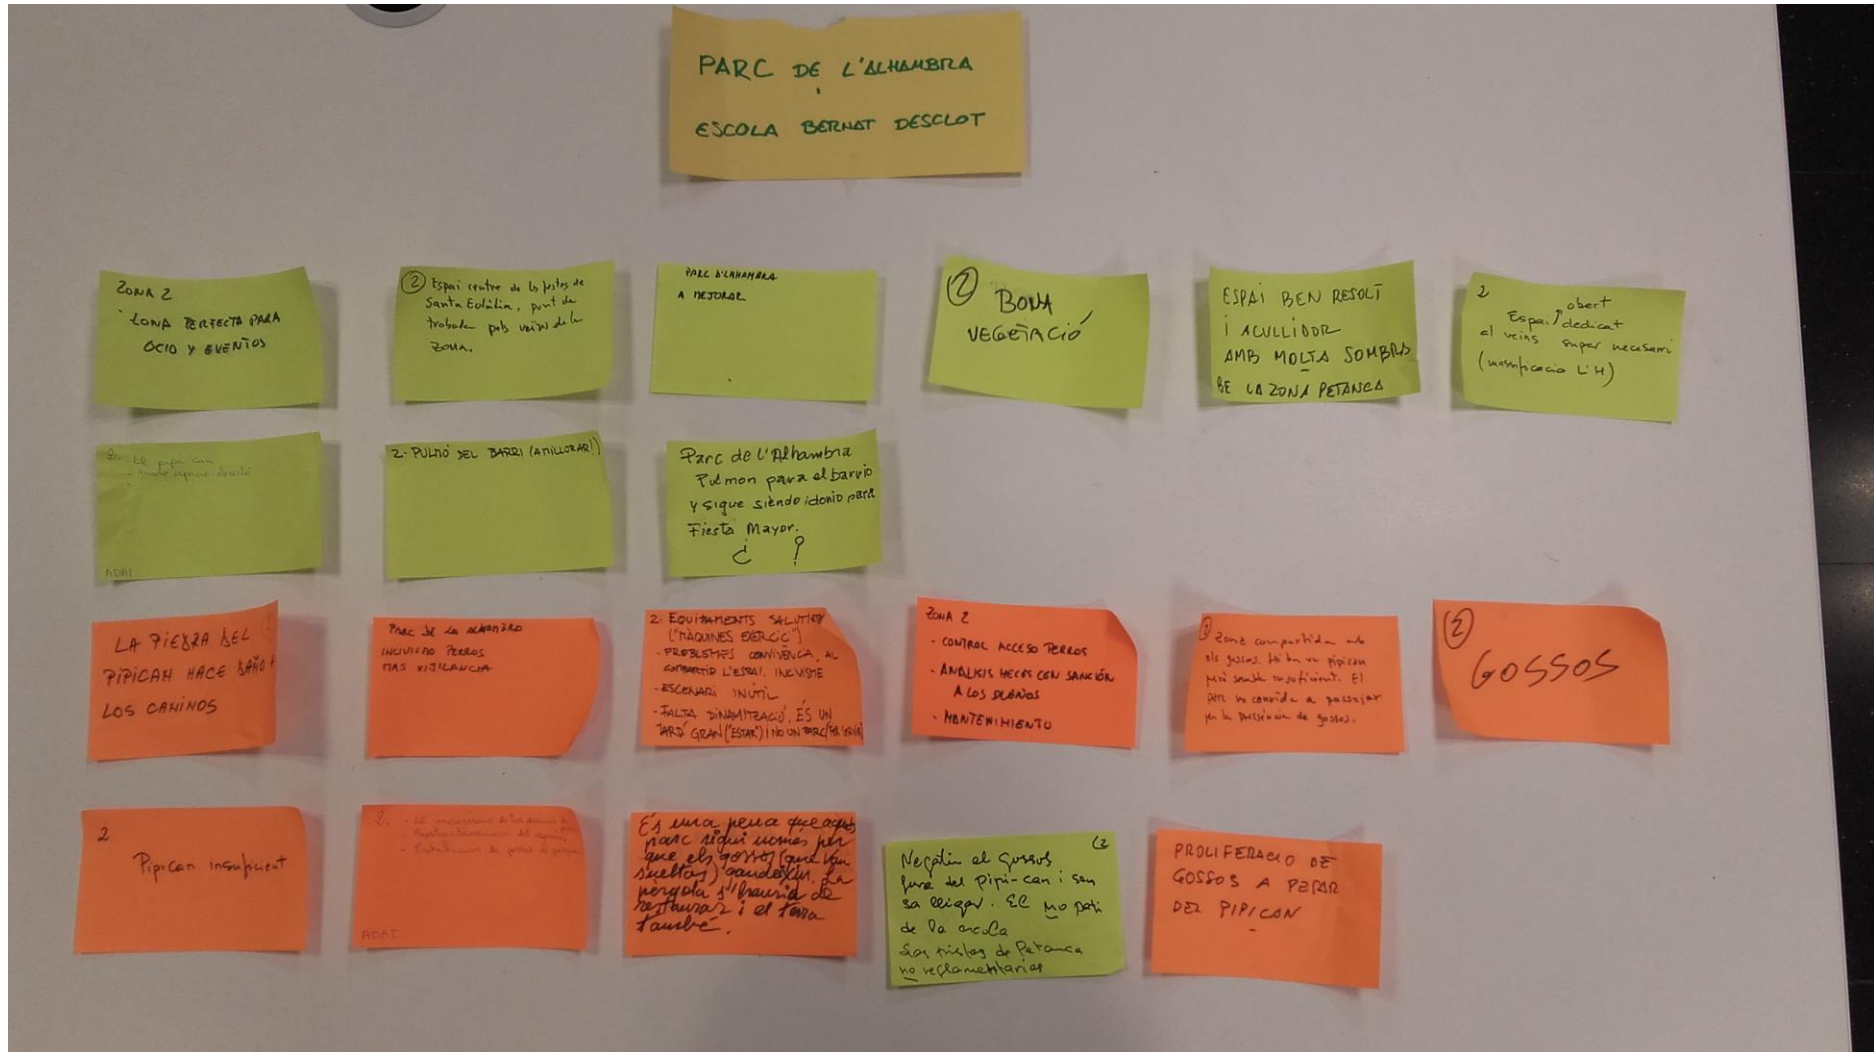 PARC DE L'ALHAMBRA
ESCOLA BERNAT DESCLOT
ZONA 2
ZONA PERFECTA PARA
OCIO Y EVENTOS
2 Espai centre de les festes de
Santa Eulàlia, punt de
trobada pels veïns de la
zona.
PARC D'LAHAMBRA
A MEJORAR
2 BONA
VEGETACIÓ
ESPAI BEN RESOLT
I ACULLIDOR
AMB MOLTA SOMBRA
BE LA ZONA PETANCA
2
obert
Espai dedicat
al veins super necesari
(massificacio L'H)
2. El pipi can
ADAI
2. PULMÓ DEL BARRI (A MILLORAR!)
Parc de L'Alhambra
Pulmon para el barrio
y sigue siendo idonio para
Fiesta Mayor.
¿ ?
LA PIEDRA DEL
PIPICAN HACE DAÑO A
LOS CAMINOS
PARC DE LA ALHAMBRA
INCIVISMO PERROS
MAS VIJILANCIA
2. EQUIPAMENTS SALUT
("MÀQUINES EXERCIC")
- PROBLEMES CONVIVÈNCIA, AL
COMPARTIR L'ESPAI. INCIVISME
- ESCENARI INÚTIL
- FALTA DINAMITZACIÓ, ÉS UN
JARDÍ GRAN ("ESTAR") I NO UN PARC
ZONA 2
- CONTROL ACCESO PERROS
- ANÁLISIS HECES CON SANCIÓN
A LOS DUEÑOS
- MANTENIMIENTO
2 Zona compartida amb
els gossos. Hi ha un pipican
però sembla insuficient. El
parc no convida a passejar
per la presència de gossos.
2
GOSSOS
2
Pipican insuficient
2.
ADAI
És una pena que aquest
parc sigui només per
que els gossos (que van
sueltos) gaudeixin. La
pergola s'hauria de
restaurar i el terra
també.
2
Negatiu el gossos
fora del pipi-can i sen
sa lligar. EL NO pati
de la escola
Las pistas de Petanca
no reglamentarias
PROLIFERACIO DE
GOSSOS A PESAR
DEL PIPICAN